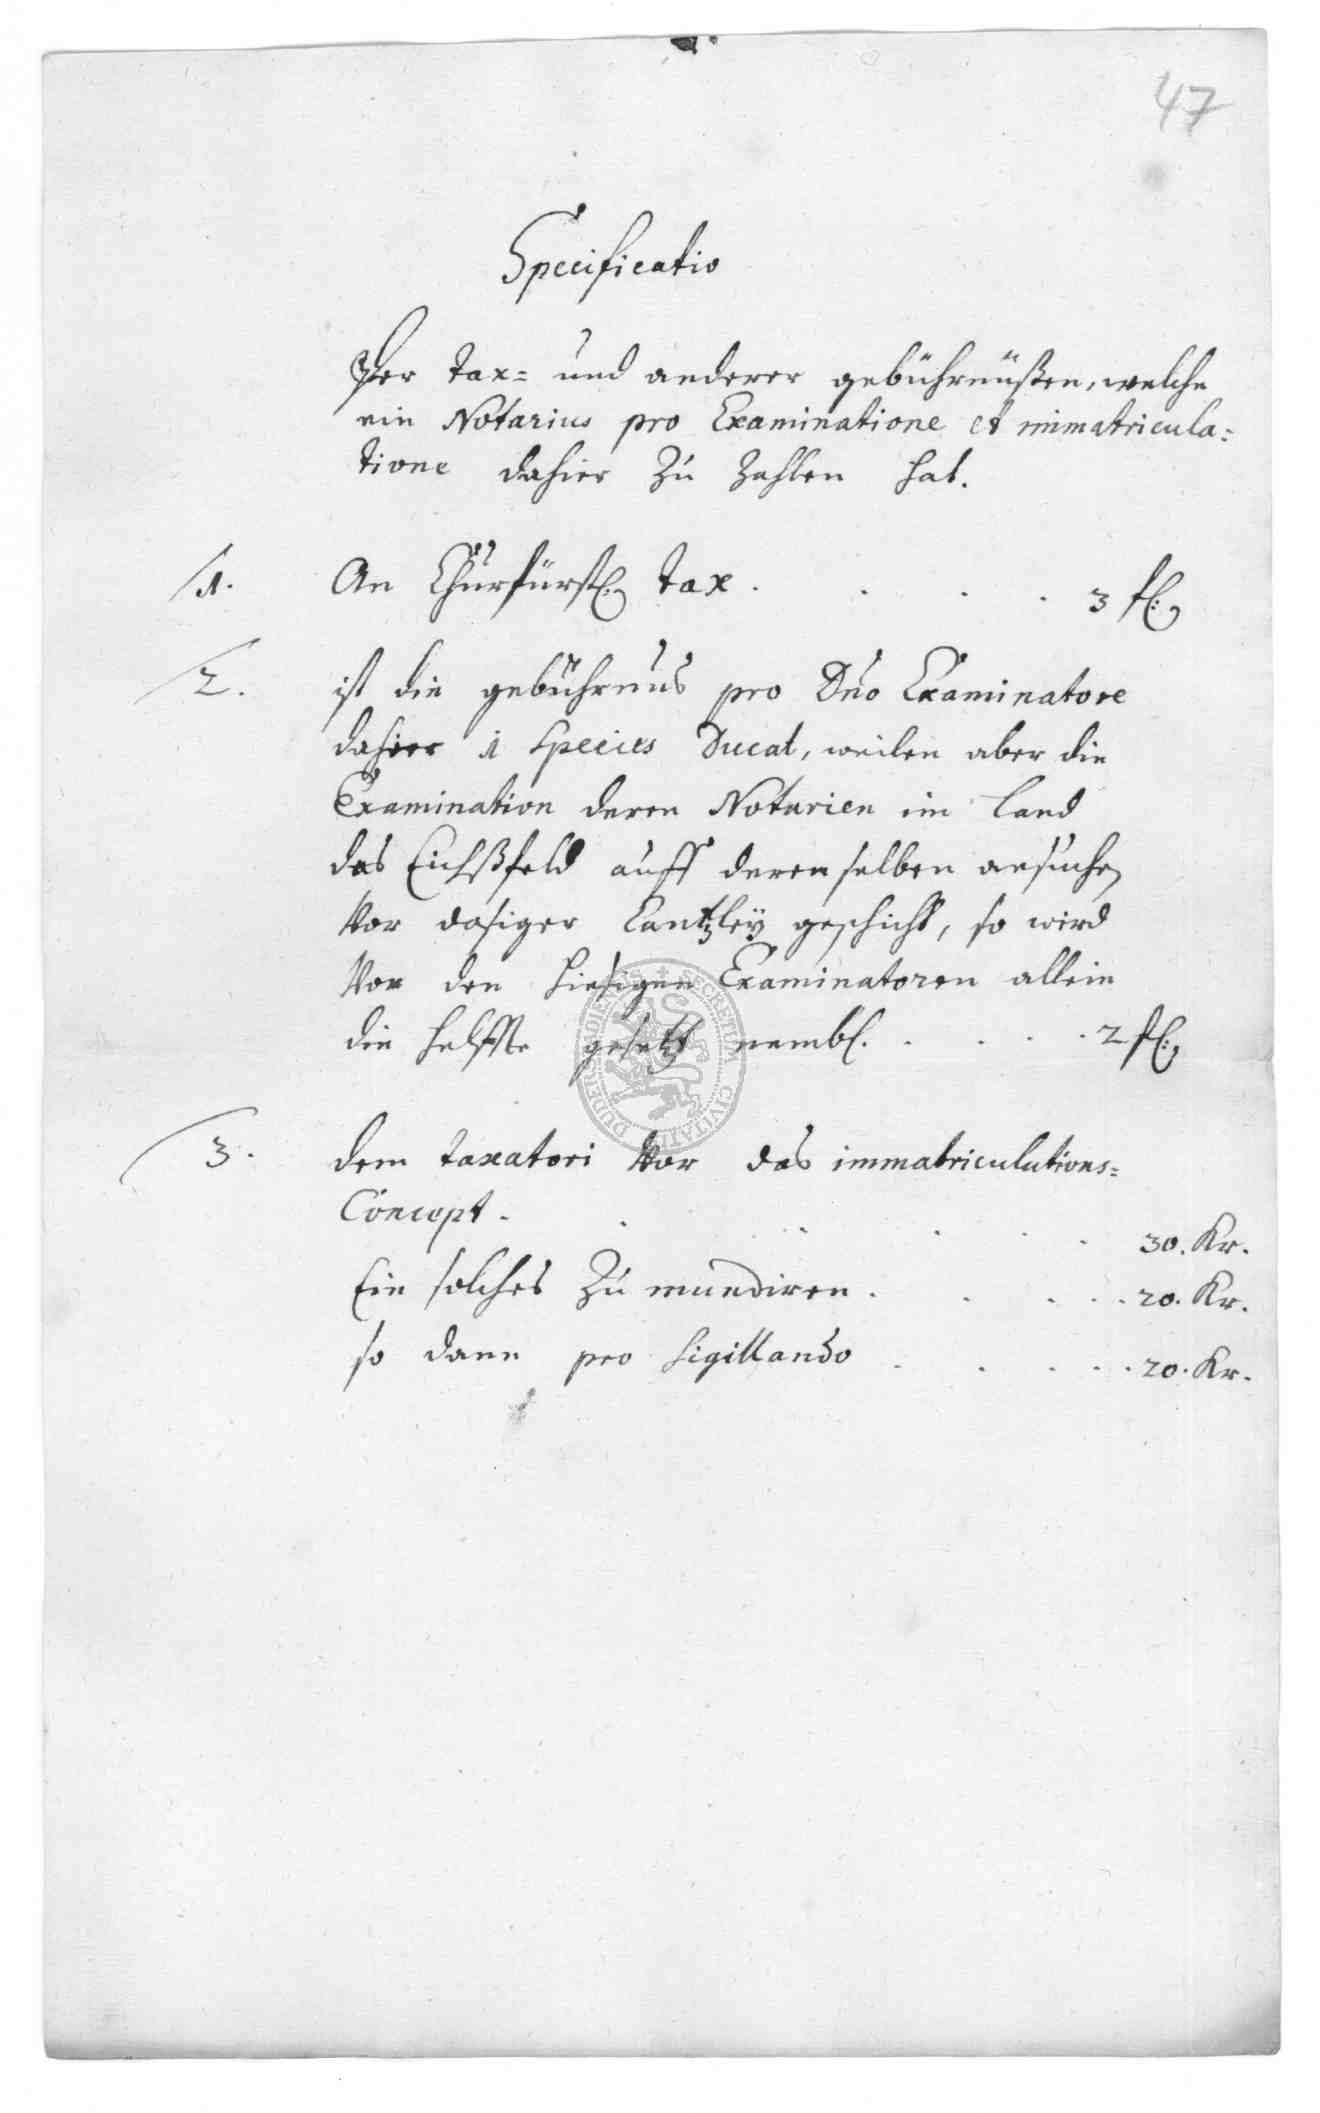 47
Specificatio
Der Tax= und anderer gebührnüßen, welche
ein Notarius pro Examinatione et immatricula=
tione dahier zu zahlen hat.
1. An Churfürstl. Tax . . . . 3 fl:
2. ist die gebührnus pro Dno Examinatore
dahier 1 Species Ducat, weilen aber die
Examination deren Notarien im Land
des Eichßfeld auff derenselben ansuchen
Vor dasiger Cantzley geschicht, so wird
Vor den hiesigen Examinatoren allein
die helffte gesetzt nembl. . . . . 2 fl:
3. dem taxatori Vor das immatriculations=
Concept . . . . . . 30. Kr.
Ein solches zu mundiren . . . . . 20. Kr.
so dann pro Sigillando . . . . . 20. Kr.
SECRETUM CIVITATIS DUDERSTADIENSIS